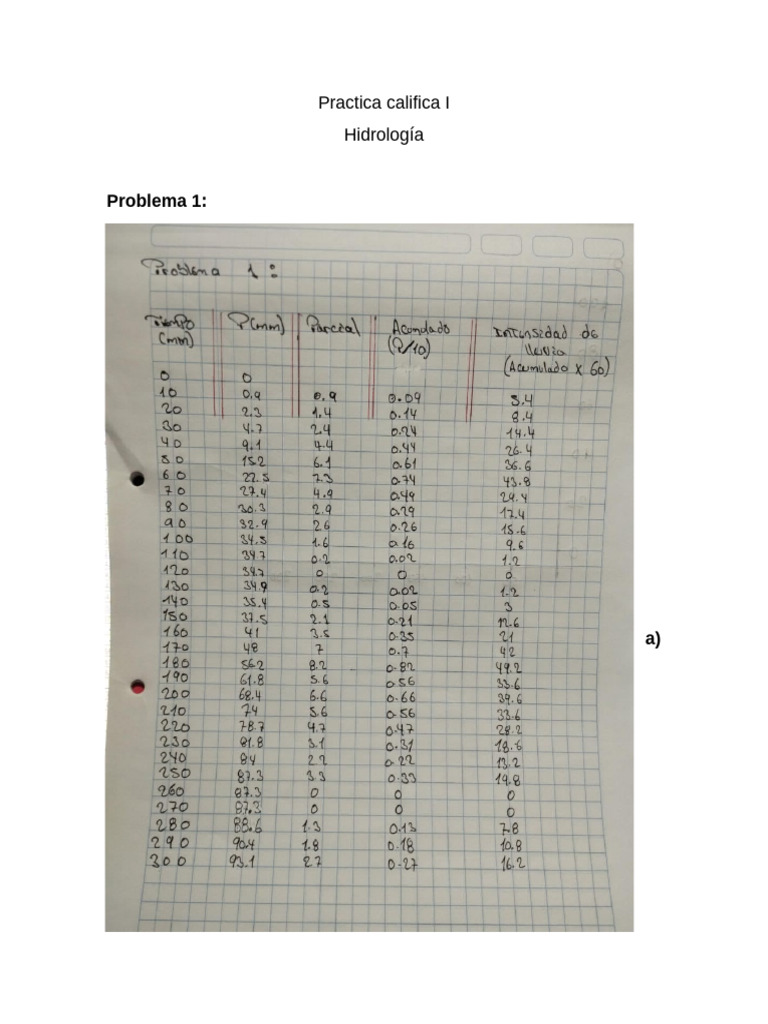 Practica califica I
Hidrología
Problema 1:
Problema 1 :
Tiempo (mm) P(mm) Parcial Acumulado (P/10) Intensidad de lluvia (Acumulado x 60)
0 0
10 0.9 0.9 0.09 5.4
20 2.3 1.4 0.14 8.4
30 4.7 2.4 0.24 14.4
40 9.1 4.4 0.44 26.4
50 15.2 6.1 0.61 36.6
60 22.5 7.3 0.74 43.8
70 27.4 4.9 0.49 29.4
80 30.3 2.9 0.29 17.4
90 32.9 26 0.26 15.6
100 34.5 1.6 0.16 9.6
110 34.7 0.2 0.02 1.2
120 34.7 0 0 0
130 34.9 0.2 0.02 1.2
140 35.4 0.5 0.05 3
150 37.5 2.1 0.21 12.6
160 41 3.5 0.35 21
170 48 7 0.7 42
a)
180 56.2 8.2 0.82 49.2
190 61.8 5.6 0.56 33.6
200 68.4 6.6 0.66 39.6
210 74 5.6 0.56 33.6
220 78.7 4.7 0.47 28.2
230 81.8 3.1 0.31 18.6
240 84 2.2 0.22 13.2
250 87.3 3.3 0.33 19.8
260 87.3 0 0 0
270 87.3 0 0 0
280 88.6 1.3 0.13 7.8
290 90.4 1.8 0.18 10.8
300 93.1 2.7 0.27 16.2